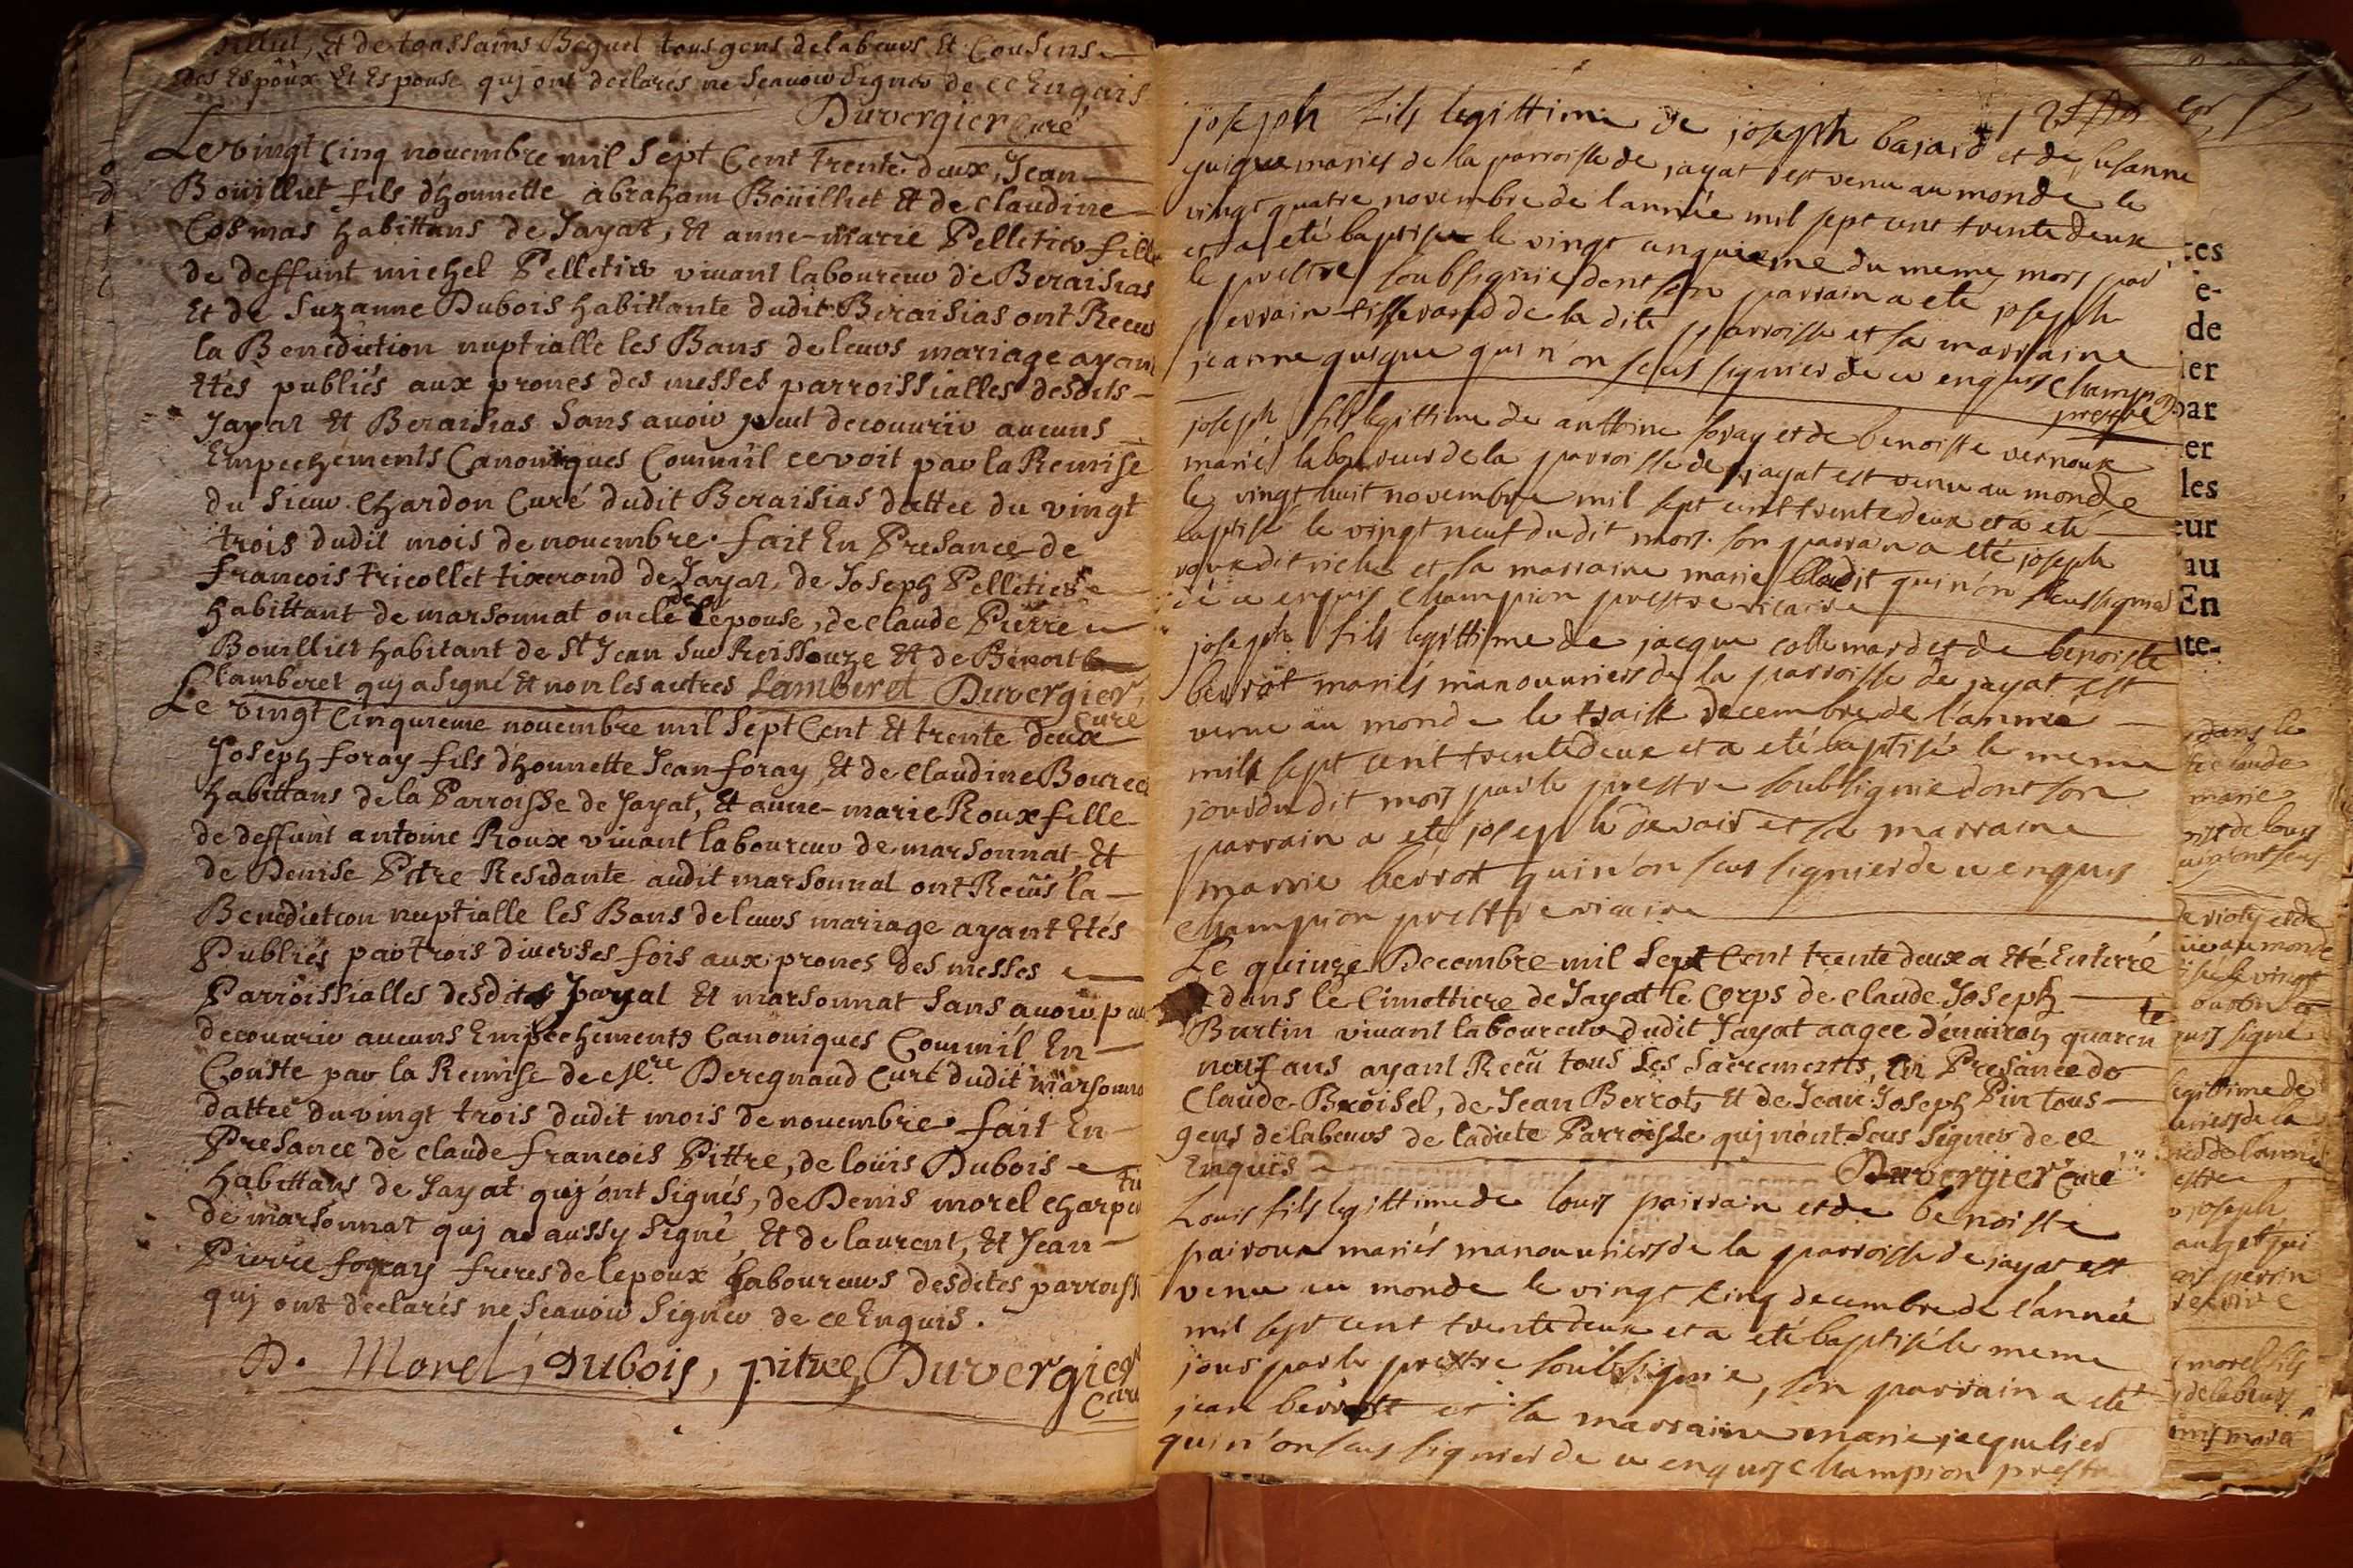 et de toussains Beguet tous gens de labeurs Et Cousins
des Espoux Et Espouse quj ont declarés ne Scauoir Signer de ce Enquis
Duvergier Curé
Le vingt Cinq nouembre mil Sept Cent trente deux, Jean
Boüilliet fils d'honnette abraham Boüilliet Et de claudine
Cosmas habittans de Jayat, Et anne-marie Pelletier fille
de deffunt michel Pelletier viuant laboureur de Beraisias
Et de Suzanne Dubois habittante dudit Beraisias ont Receu
la Benediction nuptialle les Bans de leurs mariage ayant
Etés publiés aux prones des messes parroissialles desdits
Jayat Et Beraisias Sans auoir peut decouurir aucuns
Empechements Canoniques Comm'il ce voit par la Remise
du Sieur Chardon Curé dudit Beraisias dattee du vingt
trois dudit mois de nouembre. fait En Presance de
francois tricollet tixerand de Jayat, de Joseph Pelletier
habittant de marsonnat oncle de Lepouse, de claude Pierre
Bouilliet habitant de St Jean Sur Reissouze Et de Benoit
Lamberet quj a Signé Et non les autres Lamberet Duvergier Curé
Le vingt Cinquieme nouembre mil Sept Cent Et trente deux
Joseph foray fils d'honnette Jean foray, Et de claudine
habittans de la Parroisse de Jayat, Et anne-marie Roux fille
de deffunt antoine Roux viuant laboureur de marsonnat, Et
de Denise Pitre Residante audit marsonnat ont Recüs la
Benediction nuptialle les Bans de leurs mariage ayant Etés
Publiés par trois diuerses fois aux prones des messes
Parroissialles desdites Jayat Et marsonnat Sans auoir peu
decouurir aucuns Empechements Canoniques Comm'il En
Conste par la Remise de Deregnaud Curé dudit marsonna
dattee du vingt trois dudit mois de nouembre. fait En
Presance de claude francois Pittre, de loüis Dubois
habittans de Jayat quj ont Signés, de Denis morel charpen tie
de marsonnat quj a aussy Signé, Et de laurent, Et Jean
Pierre foray freres de lepoux Laboureurs desdites parroiss
quj ont declarés ne Scauoir Signer de ce Enquis.
D. Morel, Dubois, pitre, Duvergier
Curé
joseph fils legittime de joseph bajard et de susanne
guigue mariés de la parroisse de jayat est venu au monde le
vingt quatre novembre de l'année mil sept cent trente deux
et a eté baptisé le vingt cinquieme du meme mois par
le prestre soubsignié dont son parrain a eté joseph
perrain tisserand de la dite parroisse et sa marraine
jeanne guigue qui n'on sceus signier de ce enquis Champion
prestre
joseph fils legittime de anthoine foray et de benoiste vernoux
mariés laboureurs de la parroisse de jayat est venu au monde
le vingt huit novembre mil sept cent trente deux et a eté
baptisé le vingt neuf du dit mois. son parrain a eté joseph
et sa marraine marie qui n'on sceus signié
de ce enquis Champion prestre vicaire
joseph fils legittime de jacque collemard et de benoiste
berrot mariés manouuriers de la parroisse de jayat est
venu au monde le traise decembre de l'année
mil sept cent trente deux et a eté baptisé le meme
jour du dit mois par le prestre soubsignié dont son
parrain a eté joseph et sa marraine
marie berrot qui n'on sceus signier de ce enquis
Champion prestre vicaire
Le quinze Decembre mil Sept Cent trente deux a Eté Enterré
dans le Cimottiere de Jayat le Corps de claude Joseph
Burtin viuant laboureur dudit Jayat aagee d'enuiron quaren te
neuf ans ayant Recü tous Les Sacrements, En Presance de
Claude Broisel, de Jean Berrot, Et de Jean Joseph Pin tous
gens de labeurs de ladite Parroisse quj n'ont Sceus Signer de ce
Enquis Duvergier Curé
Louis fils legittime de louis pairrain et de benoiste
pairoux mariés manouuriers de la parroisse de jayat est
venu au monde le vingt cinq decembre de l'année
mil sept cent trente deux et a eté baptisé le meme
jour par le prestre soubsignié, son parrain a eté
jean berrot et sa marraine marie jacquelier
qui n'on sceus signier de ce enquis Champion prestr
de
er
par
er
les
eur
au
En
te-
dans le
claude
marie
de viol et de
au monde
le vingt
signé
legittime de
de la
de l'anné
joseph
perrin
morel fils
de labeurs